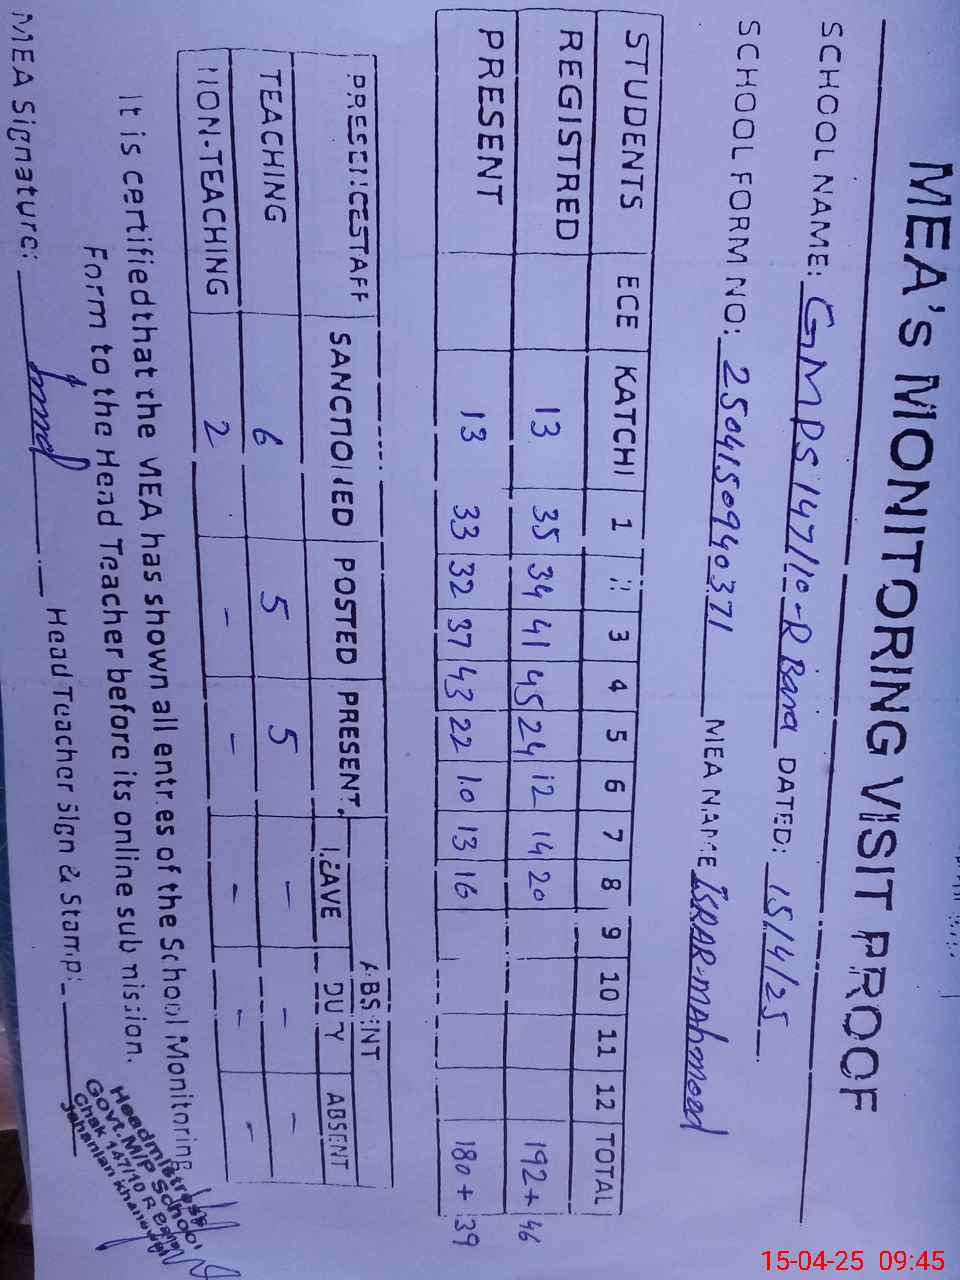 MEA'S MONITORING VISIT PROOF
SCHOOL NAME: GMPS 147/10-R Bana DATED: 15/4/25
SCHOOL FORM NO: 2504150940371 MEA NAME ISRAR-mahmood
STUDENTS ECE KATCHI 1 2 3 4 5 6 7 8 9 10 11 12 TOTAL
REGISTRED 13 35 34 41 45 24 12 14 20 192+46
PRESENT 13 33 32 37 43 22 10 13 16 180+39
PRESENCE STAFF SANCTIONED POSTED PRESENT ABSENT
LEAVE DUTY ABSENT
TEACHING 6 5 5 - - -
NON-TEACHING 2 - - - - -
It is certified that the MEA has shown all entries of the School Monitoring
Form to the Head Teacher before its online submission.
MEA Signature: Head Teacher Sign & Stamp:
Headmistress
Govt. M/P School
Chak 147/10 R Bana
Jahanian Khanewal
15-04-25 09:45